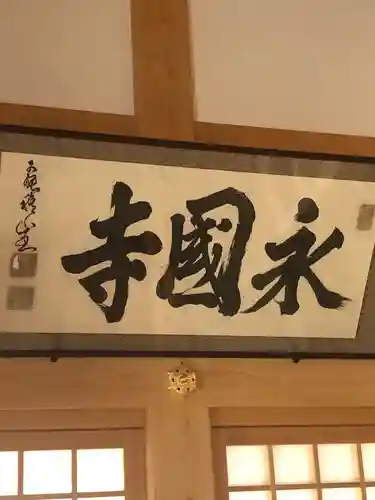 永國寺